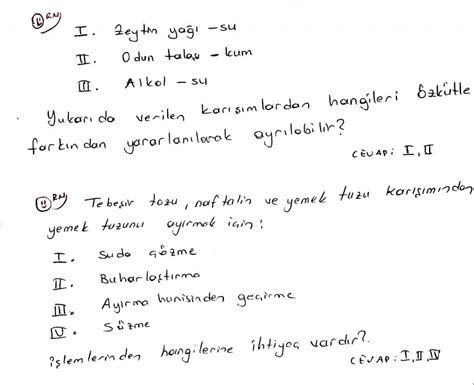 ÖRN
I. Zeytin yağı - su
II. Odun talaşı - kum
III. Alkol - su
Yukarıda verilen karışımlardan hangileri özkütle
farkından yararlanılarak ayrılabilir?
CEVAP: I, II
ÖRN Tebeşir tozu, naftalin ve yemek tuzu karışımından
yemek tuzunu ayırmak için;
I. Suda çözme
II. Buharlaştırma
III. Ayırma hunisinden geçirme
IV. Süzme
işlemlerinden hangilerine ihtiyaç vardır?
CEVAP: I, II, IV